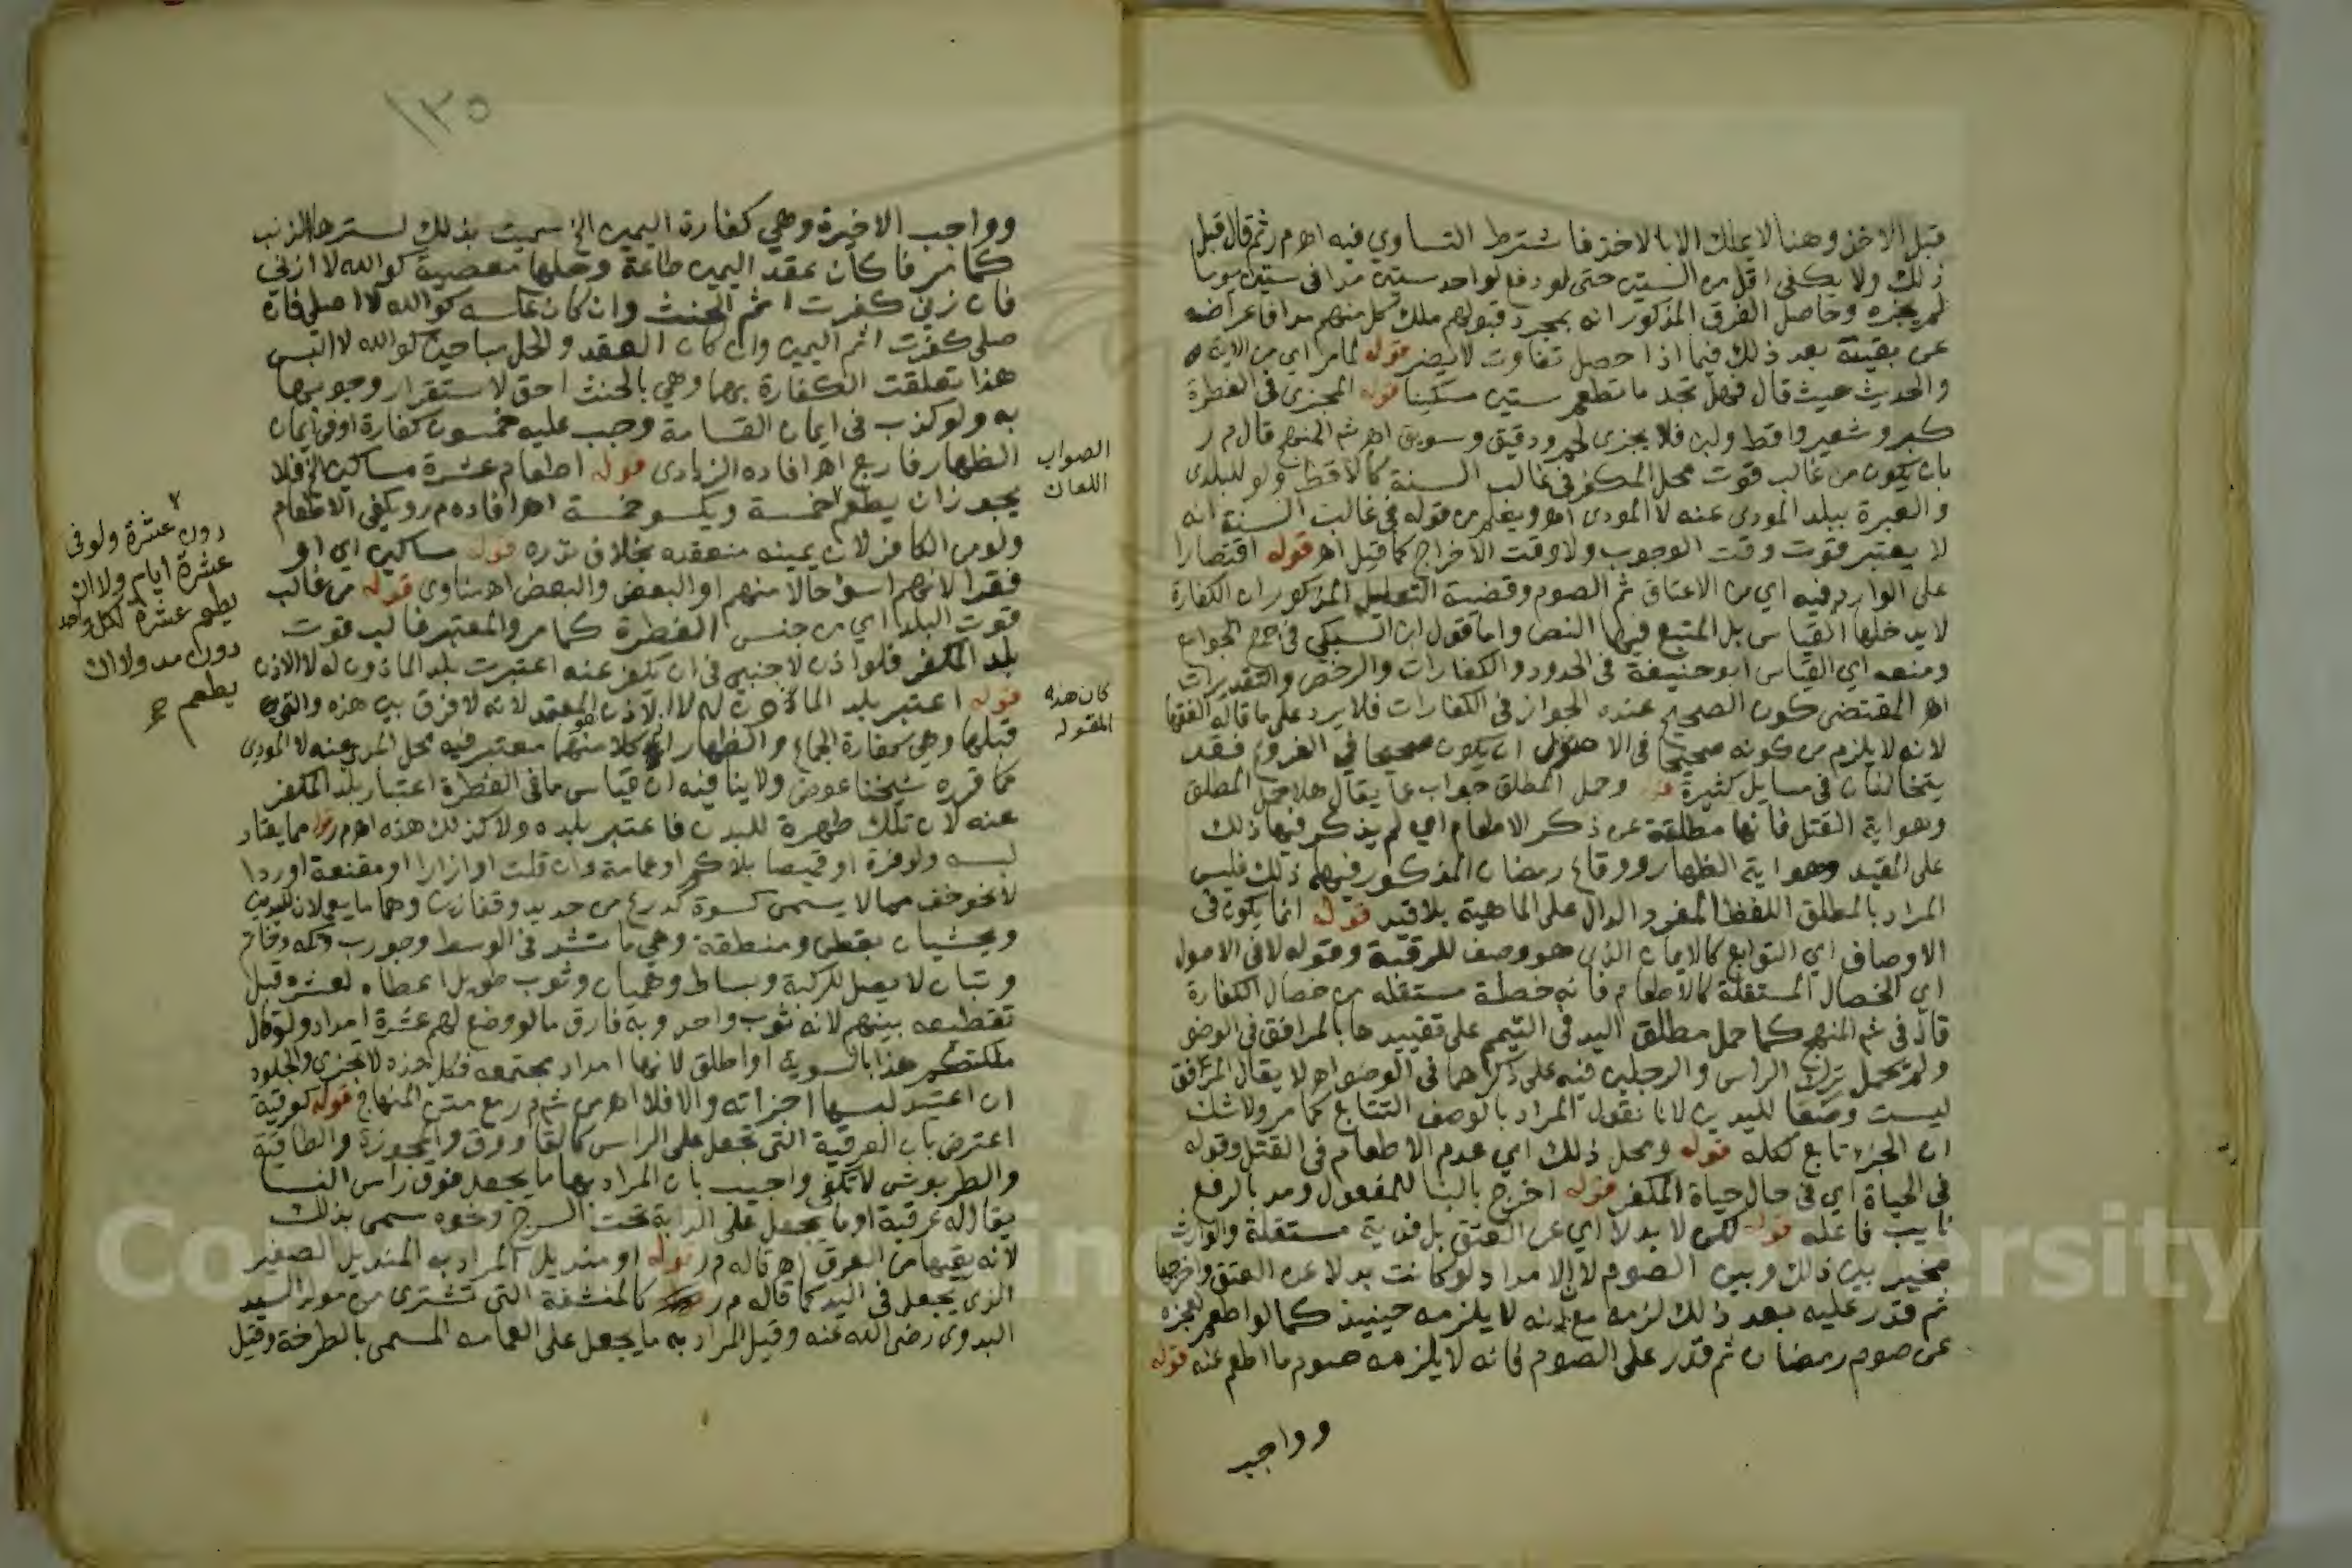 قبل الاخذ وهنا لا يملك الا بالاخذ فاشترط التساوي فيه اهـ م ر ثم قال قبل
ذلك ولا يكفي اقل من الستين حتى لو دفع لواحد ستين مدا في ستين يوما
لم يجزه وحاصل الفرق المذكور انه بمجرد قبولهم ملك كل منهم مدا فاعراضه
عن بقيته بعد ذلك فيما اذا حصل تفاوت لا يضر قوله لما مر اي من الاية
والحديث حيث قال فهل تجد ما تطعم ستين مسكينا قوله المجزى في الفطرة
كبر وشعير واقط ولبن فلا يجزى لحم ودقيق وسويق اهـ شم المنهج قال م ر
بان يكون من غالب قوت محل المكفر في غالب السنة كالاقط ولو للبلدى
والعبرة ببلد المودى عنه لا المودى اهـ ويعلم من قوله في غالب السنة انه
لا يعتبر قوت وقت الوجوب ولا وقت الاخراج كما قيل اهـ قوله اقتصارا
على الوارد فيه اي من الاعتاق ثم الصوم وقضية التعليل المذكور ان الكفارة
لا يدخلها القياس بل المتبع فيها النص واما قول ابن السبكي في جمع الجوامع
ومنعه اي القياس ابو حنيفة في الحدود والكفارات والرخص والتقديرات
اهـ المقتضى كون الصحيح عنده الجواز في الكفارات فلا يرد على ما قاله الفقها
لانه لا يلزم من كونه صحيحا في الاصول ان يكون صحيحا في الفروع فقد
يتخالفان في مسايل كثيرة قوله وحمل المطلق جواب عما يقال هلا حمل المطلق
وهو اية القتل فانها مطلقة عن ذكر الاطعام اي لم يذكر فيها ذلك
على المقيد وهو اية الظهار ووقاع رمضان المذكور فيهما ذلك فليس
المراد بالمطلق اللفظ المفرد الدال على الماهية بلا قيد قوله انما يكون في
الاوصاف اي التوابع كالايمان الذي هو وصف للرقبة وقوله لا في الاصول
اي الخصال المستقلة كالاطعام فانه خصلة مستقله من خصال الكفارة
قال في شم المنهج كما حمل مطلق اليد في التيمم على تقييدها بالمرافق في الوضو
ولم يحمل ترك الراس والرجلين فيه على ذكرهما في الوضو اهـ لا يقال المرافق
ليست وصفا لليدين لانا نقول المراد بالوصف التتابع كما مر ولا شك
ان الجزء تابع لكله قوله ومحل ذلك اي عدم الاطعام في القتل وقوله
في الحياة اي في حال حياة المكفر قوله اخرج بالبنا للمفعول ومد بالرفع
نايب فاعله قوله لكن لا بدلا اي عن العتق بل فدية مستقلة والوارث
مخير بين ذلك وبين الصوم لان الامداد لو كانت بدلا عن العتق واخرجها
ثم قدر عليه بعد ذلك لزمه مع انه لا يلزمه حينيذ كما لو اطعم لعجزه
عن صوم رمضان ثم قدر على الصوم فانه لا يلزمه صوم ما اطعم عنه قوله
وواجب
١٣٥
وواجب الاخيرة وهي كفارة اليمين الخ سميت بذلك لسترها الذنب
كما مر فان كان عقد اليمين طاعة وحلها معصية كوالله لا ازني
فان زني كفرت اثم الحنث وان كان عكسه كوالله لا اصلى فان
صلى كفرت اثم اليمين وان كان العقد والحل مباحين كوالله لا البس
هذا تعلقت الكفارة بهما وهي بالحنث احق لاستقرار وجوبها
به ولو كذب في ايمان القسامة وجب عليه خمسون كفارة او في ايمان
الظهار فاربع اهـ افاده الزيادى قوله اطعام عشرة مساكين الخ فلا
يجوز ان يطعم خمسة ويكسو خمسة اهـ افاده م ر ويكفي الاطعام
ولو من الكافر لان يمينه منعقده بخلاف نذره قوله مساكين اي او
فقرا لانهم اسوء حالا منهم او البعض والبعض اهـ مناوى قوله من غالب
قوت البلد اي من جنس الفطرة كما مر والمعتبر غالب قوت
بلد المكفر فلو اذن لاجنبي في ان يكفر عنه اعتبرت بلد الماذون له لا الاذن
قوله اعتبر بلد الماذون له لا الاذن المعتمد لانه لا فرق بين هذه والتي
قبلها وهي كفارة الجماع والظهار ان كلا منهما معتبر فيه محل المودى عنه لا المودى
كما قرره شيخنا عوض ولا ينافيه ان قياس ما في الفطرة اعتبار بلد المكفر
عنه لان تلك طهرة للبدن فاعتبر بلده ولا كذلك هذه اهـ م ر قوله مما يعتاد
لبسه ولو فرة او قميصا بلا كم او عمامة وان قلت او ازارا او مقنعة او ردا
لا نحو خف مما لا يسمى كسوة كدرع من حديد وقفازين وهما ما يعملان لليدين
ويحشيان بقطن ومنطقة وهي ما تشد في الوسط وجورب وتكه وخاتم
وتبان لا يصل للركبة وبساط وهميان وثوب طويل اعطاه لعشره قبل
تقطيعه بينهم لانه ثوب واحد وبه فارق ما لو وضع لهم عشرة امداد ولو قال
ملكتكم هذا بالسوية او اطلق لانها امداد مجتمعه فكل هذه لا تجزى والجلود
ان اعتيد لبسها اجزاته والا فلا اهـ من شم م ر مع متن المنهاج قوله كعرقية
اعترض بان العرقية التي تجعل على الراس كالقاووق والمجوزة والطاقية
والطربوش لا تكفي واجيب بان المراد بها ما يجعل فوق راس النسا
يقال له عرقية او ما يجعل على الدابة تحت السرج ونحوه سمى بذلك
لانه يقيها من العرق اهـ قاله م ر قوله او منديل المراد به المنديل الصغير
الذي يجعل في اليد كما قاله م ر كالمنشفة التي تشترى من مولد السيد
البدوى رضى الله عنه وقيل المراد به ما يجعل على العمامه المسمى بالطرحة وقيل
الصواب
اللعان
كان هذه
المقوله
دون عشرة ولو في
عشرة ايام ولا ان
يطعم عشرة لكل واحد
دون مد ولا ان
يطعم